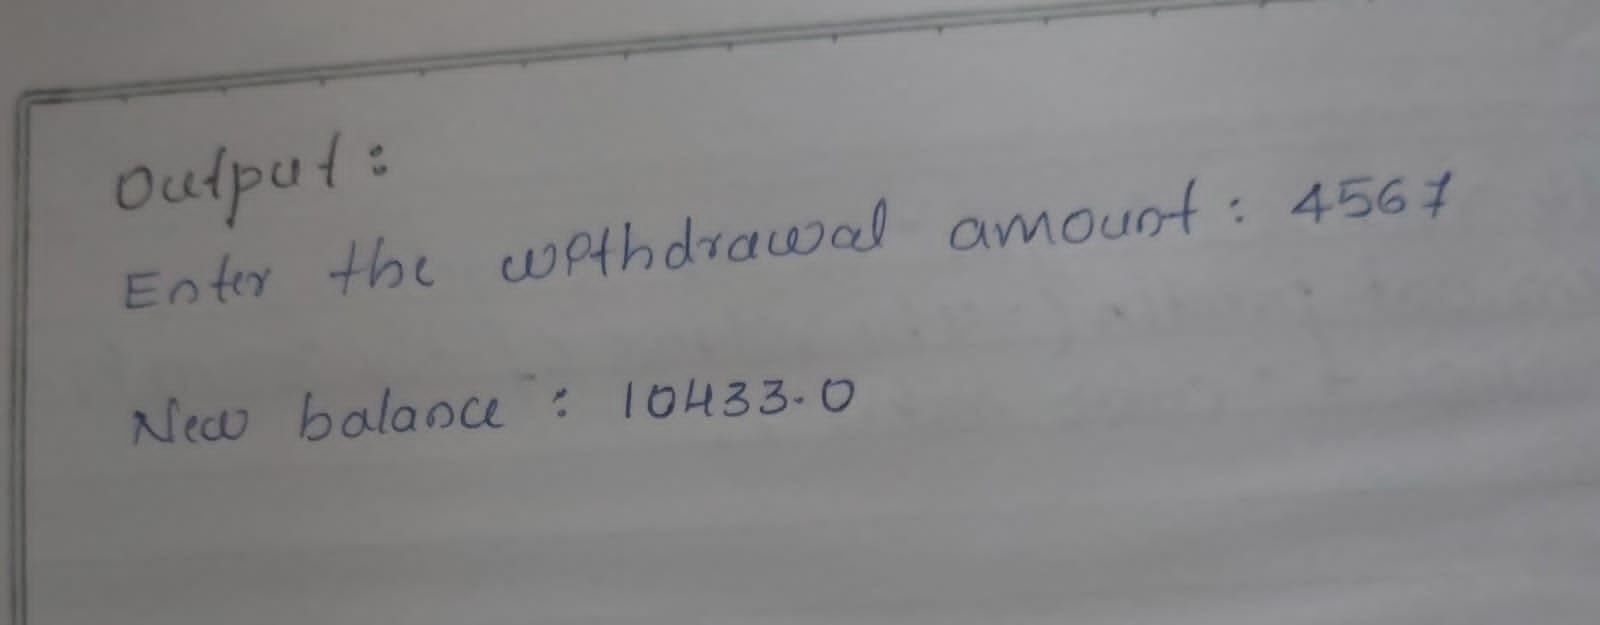 Output :
Enter the withdrawal amount : 4567
New balance : 10433.0